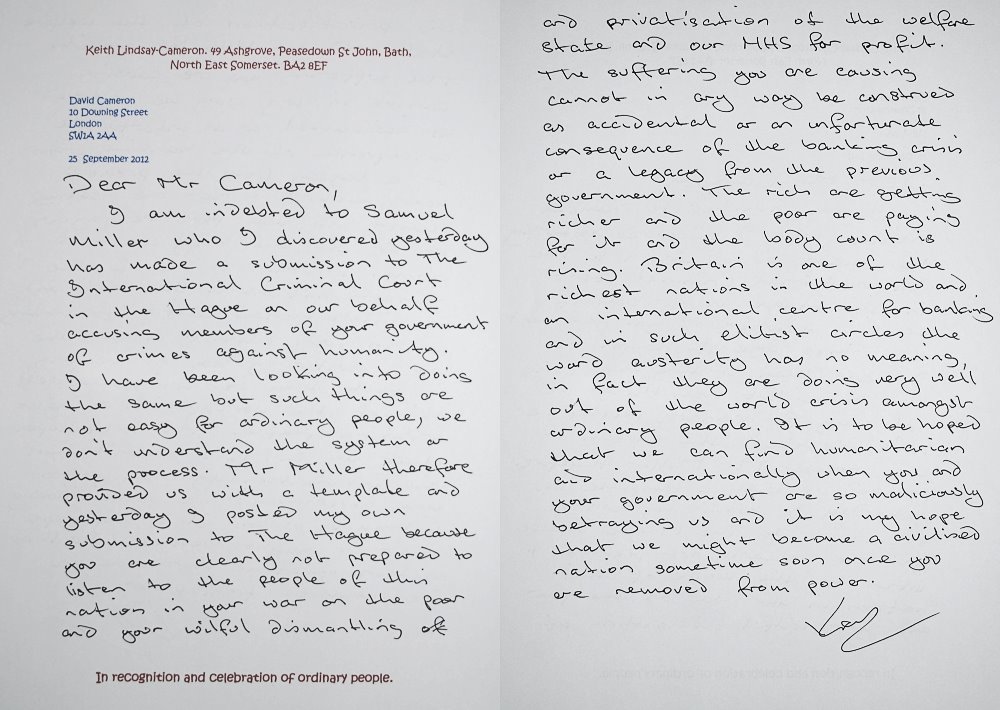 Keith Lindsay-Cameron. 49 Ashgrove, Peasedown St John, Bath,
North East Somerset. BA2 8EF
David Cameron
10 Downing Street
London
SW1A 2AA
25 September 2012
Dear Mr Cameron,
I am indebted to Samuel
Miller who I discovered yesterday
has made a submission to The
International Criminal Court
in the Hague on our behalf
accusing members of your government
of crimes against humanity.
I have been looking into doing
the same but such things are
not easy for ordinary people, we
don't understand the system or
the process. Mr Miller therefore
provided us with a template and
yesterday I posted my own
submission to The Hague because
you are clearly not prepared to
listen to the people of this
nation in your war on the poor
and your wilful dismantling of
In recognition and celebration of ordinary people.
and privatisation of the welfare
state and our NHS for profit.
The suffering you are causing
cannot in any way be construed
as accidental or an unfortunate
consequence of the banking crisis
or a legacy from the previous
government. The rich are getting
richer and the poor are paying
for it and the body count is
rising. Britain is one of the
richest nations in the world and
an international centre for banking
and in such elitist circles the
word austerity has no meaning,
in fact they are doing very well
out of the world crisis amongst
ordinary people. It is to be hoped
that we can find humanitarian
aid internationally when you and
your government are so maliciously
betraying us and it is my hope
that we might become a civilised
nation sometime soon once you
are removed from power.